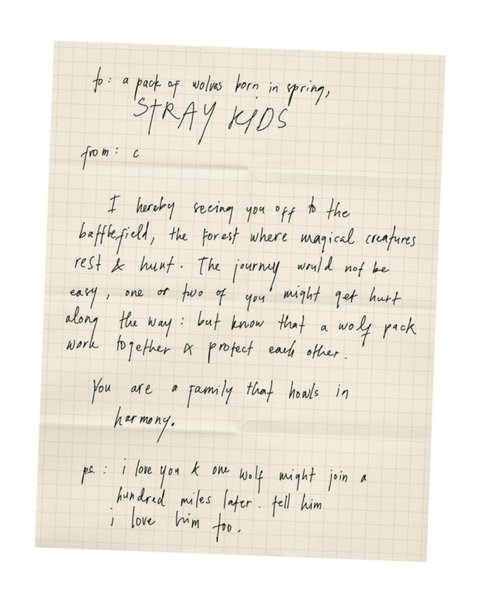 to: a pack of wolves born in spring,
STRAY KIDS
from: c
I hereby seeing you off to the
battlefield, the forest where magical creatures
rest & hunt. The journey would not be
easy, one or two of you might get hurt
along the way: but know that a wolf pack
work together & protect each other.
You are a family that howls in
harmony.
ps: i love you & one wolf might join a
hundred miles later. tell him
i love him too.